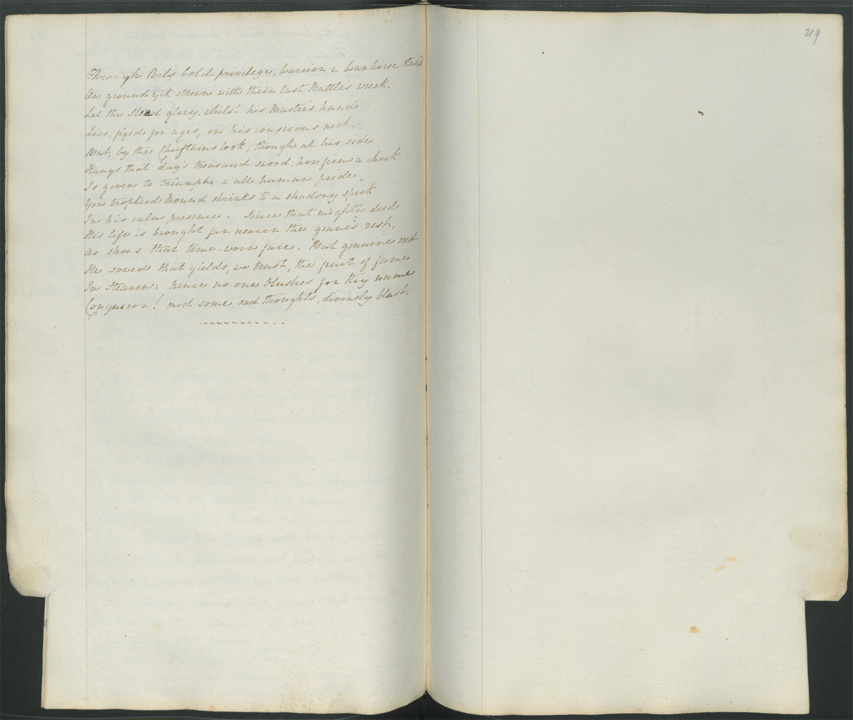 Through Art's bold privilege, Warrior & War-horse stand
On ground yet strewn with their last Battle's wreck.
Let the Steed glory, while his Master's hand
Lies, fixed for ages, on his conscious neck.
But, by the Chieftains look, though at his side
Hangs that day's treasured sword, how firm a check
Is given to triumph & all human pride.
Yon trophied Mound shrinks to a shadowy speck
In his calm presence. Since that mighty deed
His life is brought far nearer the grave's rest,
As shows that time-worn face. But genuine seed
He sowed that yields, we trust, the fruit of fame
In Heaven; hence no one blushes for thy name
Conqueror! mid some sad thoughts, divinely blest.
219